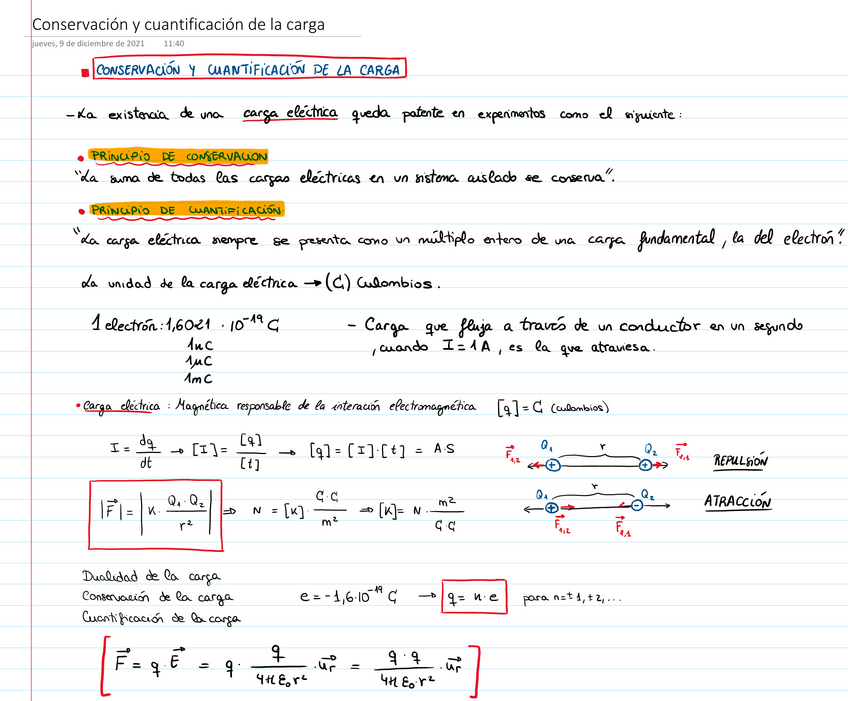 Conservación y cuantificación de la carga
jueves, 9 de diciembre de 2021 11:40
CONSERVACIÓN Y CUANTIFICACIÓN DE LA CARGA
-La existencia de una carga eléctrica queda patente en experimentos como el siguiente:
• PRINCIPIO DE CONSERVACION
"La suma de todas las cargas eléctricas en un sistema aislado se conserva".
• PRINCIPIO DE CUANTIFICACIÓN
"La carga eléctrica siempre se presenta como un múltiplo entero de una carga fundamental, la del electrón".
La unidad de la carga eléctrica → (C) Culombios.
1 electrón: 1,6021 · 10⁻¹⁹ C
1nC
1μC
1mC
- Carga que fluja a través de un conductor en un segundo
, cuando I = 1 A, es la que atraviesa.
• Carga eléctrica : Magnética responsable de la interación electromagnética [q] = C (culombios)
I = dq/dt → [I] = [q]/[t] → [q] = [I]·[t] = A·S
F⃗₁,₂ Q₁ r Q₂ F⃗₂,₁ REPULSIÓN
+ +
|F⃗| = |K · Q₁·Q₂/r²| ⇒ N = [K] · C·C/m² ⇒ [K] = N · m²/C·C
Q₁ r Q₂ ATRACCIÓN
+ -
F⃗₁,₂ F⃗₂,₁
Dualidad de la carga
Conservación de la carga
Cuantificación de la carga
e = -1,6·10⁻¹⁹ C → q = n·e para n=±1, ±2, ...
F⃗ = q · E⃗ = q · q/4πε₀r² · u⃗r = q·q/4πε₀·r² · u⃗r